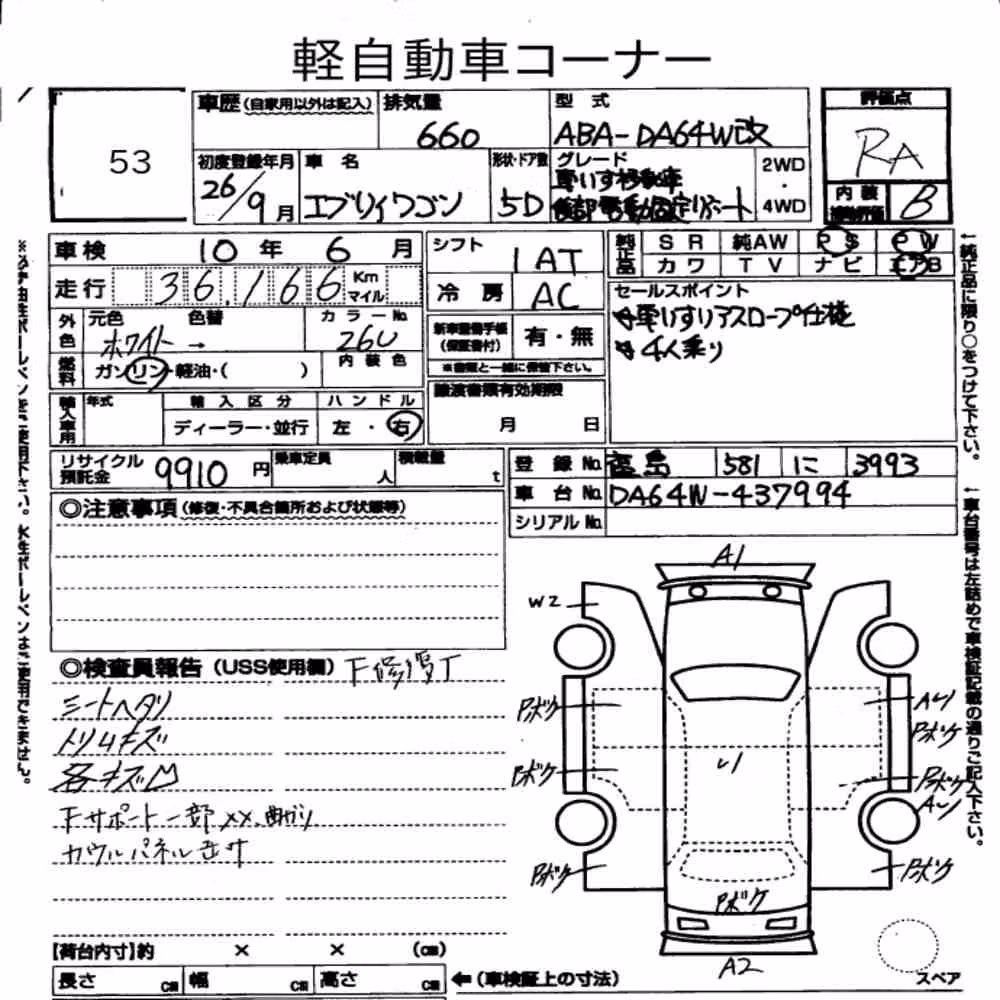 軽自動車コーナー
53
車歴 (自家用以外は記入)
排気量
660
型式
ABA-DA64W改
評価点
RA
初度登録年月
26/9月
車名
エブリイワゴン
形状・ドア数
5D
グレード
車いす移動車
2WD
・
4WD
内装
補助評価
B
車検 10年 6月
走行 36,166 Km マイル
外色
元色 色替
ホワイト →
カラーNo.
26U
燃料
ガソリン・軽油・( )
内装色
輸入車用
年式
輸入区分
ディーラー・並行
ハンドル
左・右
シフト
1AT
冷房
AC
新車整備手帳
(保証書付)
有・無
※書類と一緒に保管下さい。
譲渡書類有効期限
月 日
純正品
SR 純AW PS PW
カワ TV ナビ エアB
セールスポイント
車いすリアスロープ仕様
4人乗り
リサイクル預託金
9910円
乗車定員
人
積載量
t
登録No. 福島 581 に 3993
車台No. DA64W-437994
シリアルNo.
◎注意事項 (修復・不具合箇所および状態等)
◎検査員報告 (USS使用欄) F修復丁
シートヘタリ
トリムキズ
各キズ凹
Fサポート一部XX、曲がり
カウルパネル
A1
W2
Pボケ
Pボケ
Pボケ
Pボケ
Pボケ
Pボケ
Pボケ
A2
【荷台内寸】約 × × (cm)
長さ cm
幅 cm
高さ cm
←(車検証上の寸法)
スペア
←純正品に限り○をつけて下さい。
←車台番号は左詰めで車検証記載の通りご記入下さい。